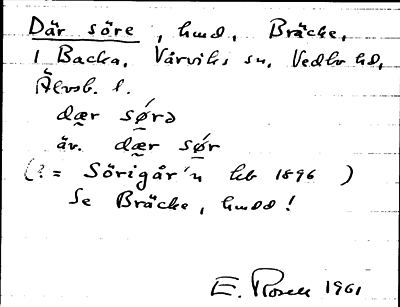 Där söre, hmd, Bräcke,
1 Backa, Vårviks sn, Vedbo hd,
Älvsb. l.
dær sǿrə
äv. dær sǿr
(? = Sörigår'n hb 1896 )
Se Bräcke, hmdd!
E. Rosell 1961